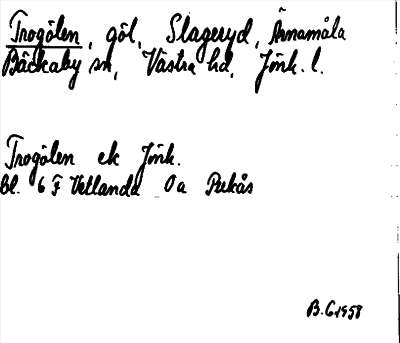 Trogölen, göl, Slageryd, Ärnamåla
Bäckaby sn, Västra hd, Jönk. l.
Trogölen ek Jönk.
Bl. 6 F Vetlanda 0a
B.G. 1958